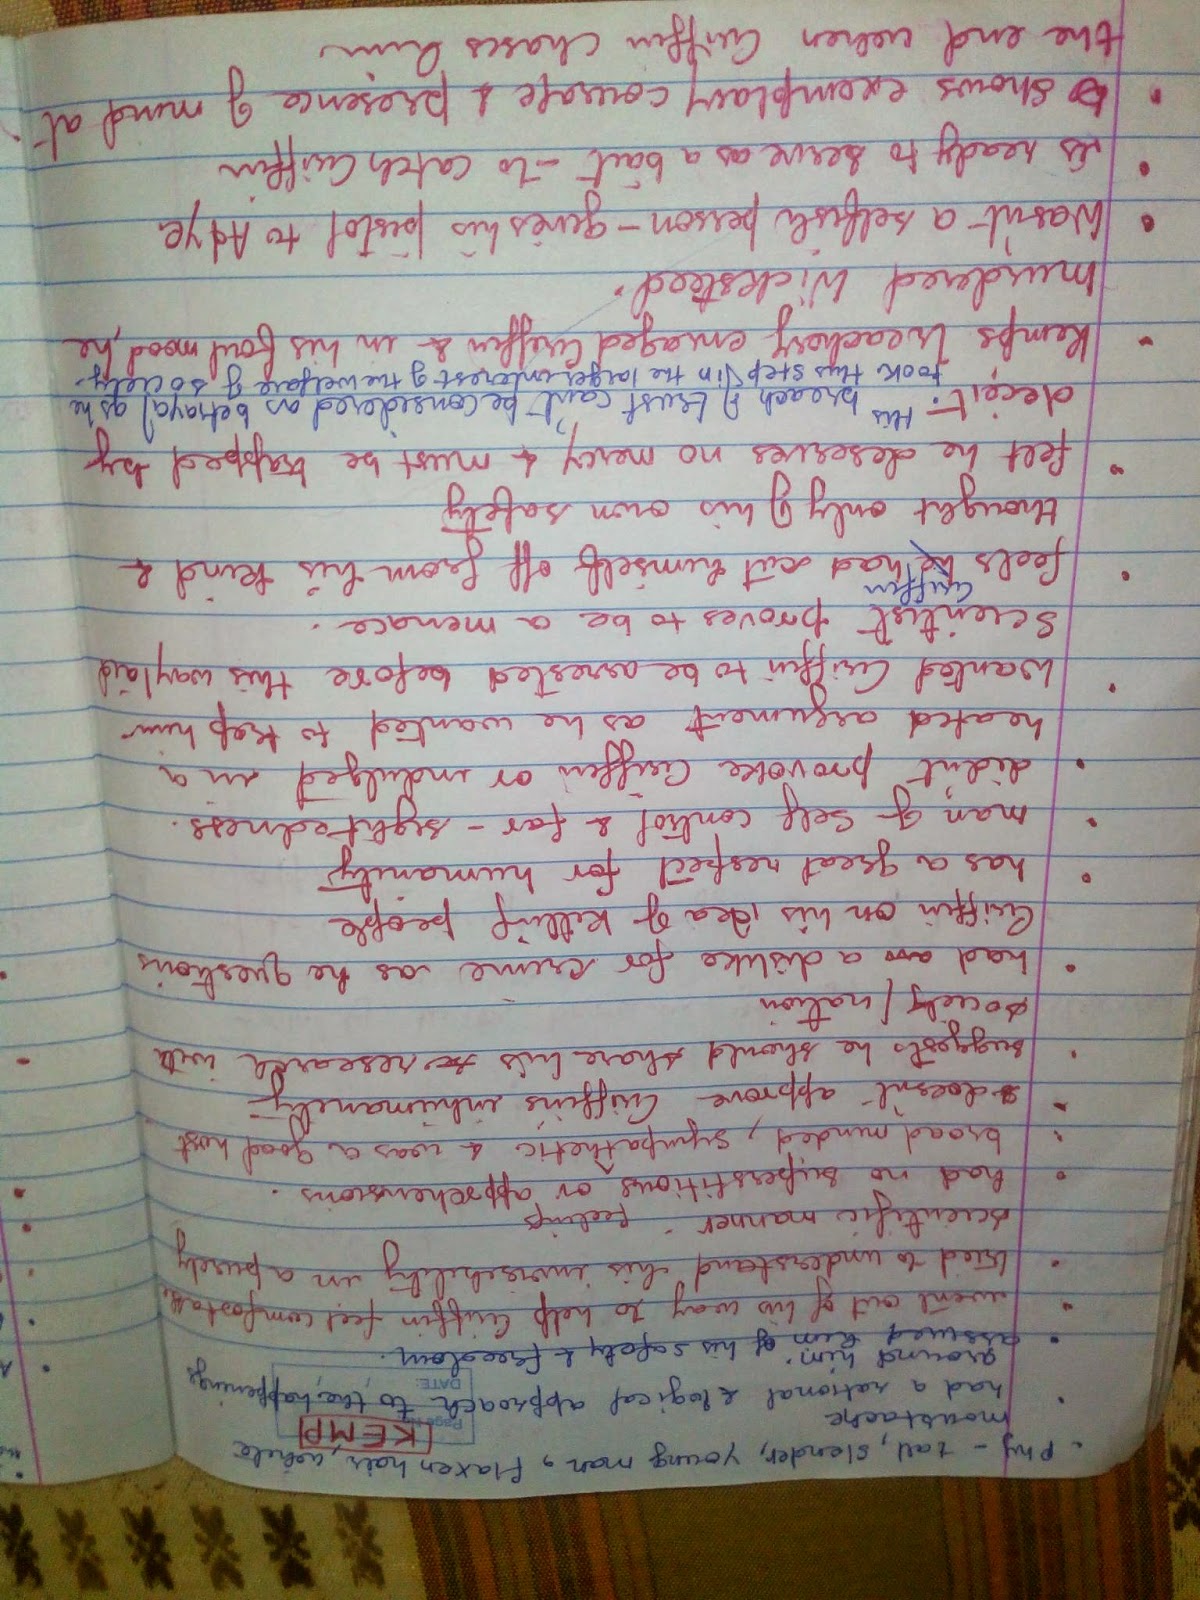 KEMP
Page No.
DATE:
• Phy - tall, slender, young man, flaxen hair, white
moustache
• had a rational & logical approach to the happenings
around him.
• assured him of his safety & freedom.
• went out of his way to help Griffin feel comfortable
• tried to understand his invisibility in a purely
scientific manner feelings
• had no superstitious or apprehensions.
• broad minded, sympathetic & was a good host
• doesn't approve Griffin's inhumanely
• suggests he should share his research with
society / nation
• had a dislike for crime as he questions
Griffin on his idea of killing people
• has a great respect for humanity
• man of self control & far-sightedness.
• didn't provoke Griffin or indulged in a
heated argument as he wanted to keep him
• wanted Griffin to be arrested before this waylaid
scientist proves to be a menace.
• feels he Griffin had cut himself off from his kind &
thought only of his own safety
• felt he deserves no mercy & must be trapped by
deceit. His breach of trust can't be considered as betrayal as he
took this step in the larger interest of the welfare of society.
• Kemps treachery enraged Griffin & in his foul mood, he
murdered Wicksteed.
• Wasn't a selfish person - gives his pistol to Adye
• is ready to serve as a bait - to catch Griffin
• shows exemplary courage & presence of mind at
the end when Griffin chases him